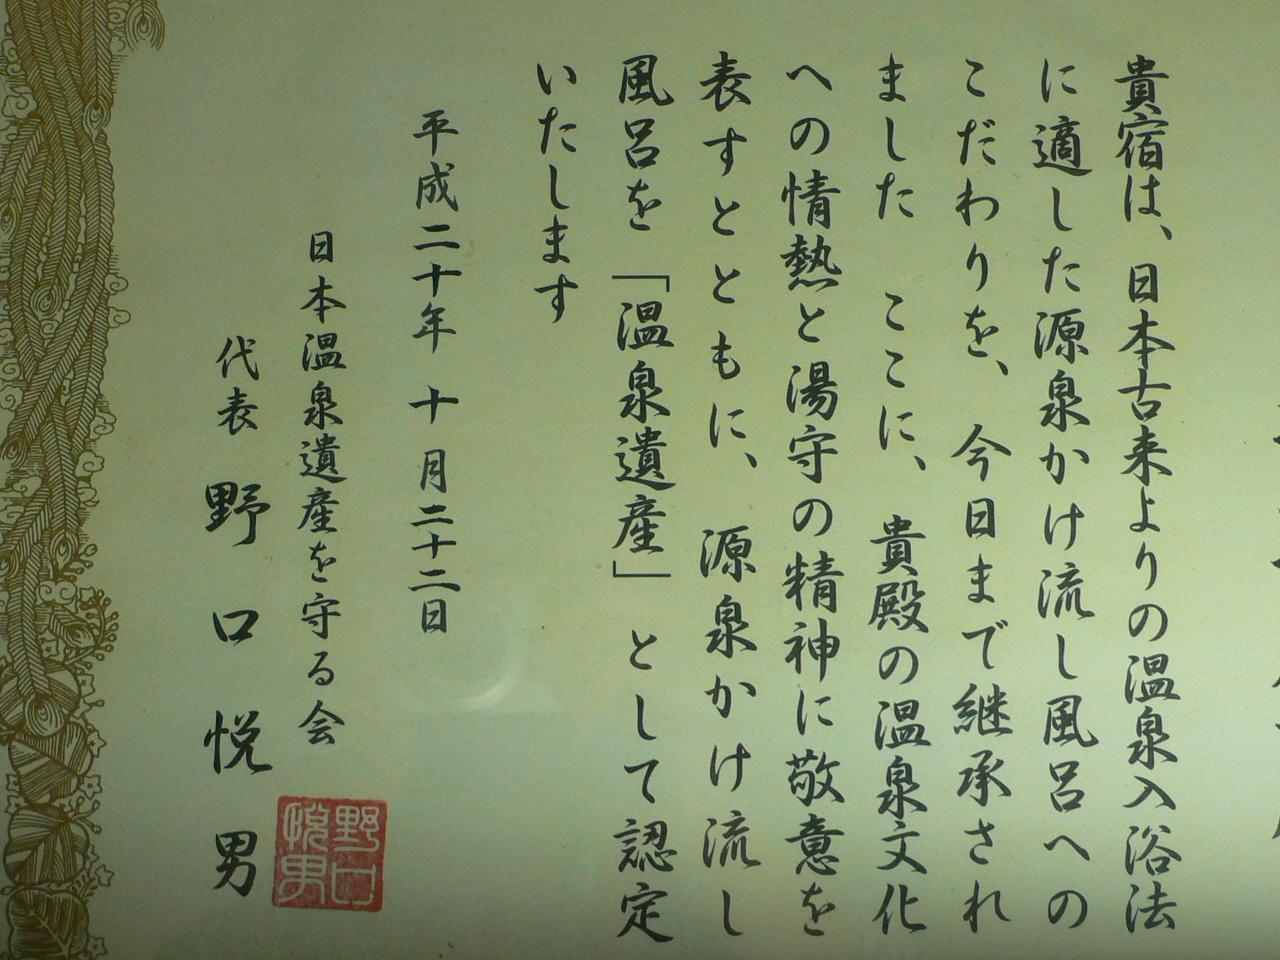 貴宿は、日本古来よりの温泉入浴法
に適した源泉かけ流し風呂への
こだわりを、今日まで継承され
ました ここに、貴殿の温泉文化
への情熱と湯守の精神に敬意を
表すとともに、源泉かけ流し
風呂を「温泉遺産」として認定
いたします
平成二十年 十月二十二日
日本温泉遺産を守る会
代表 野口悦男
野口悦男